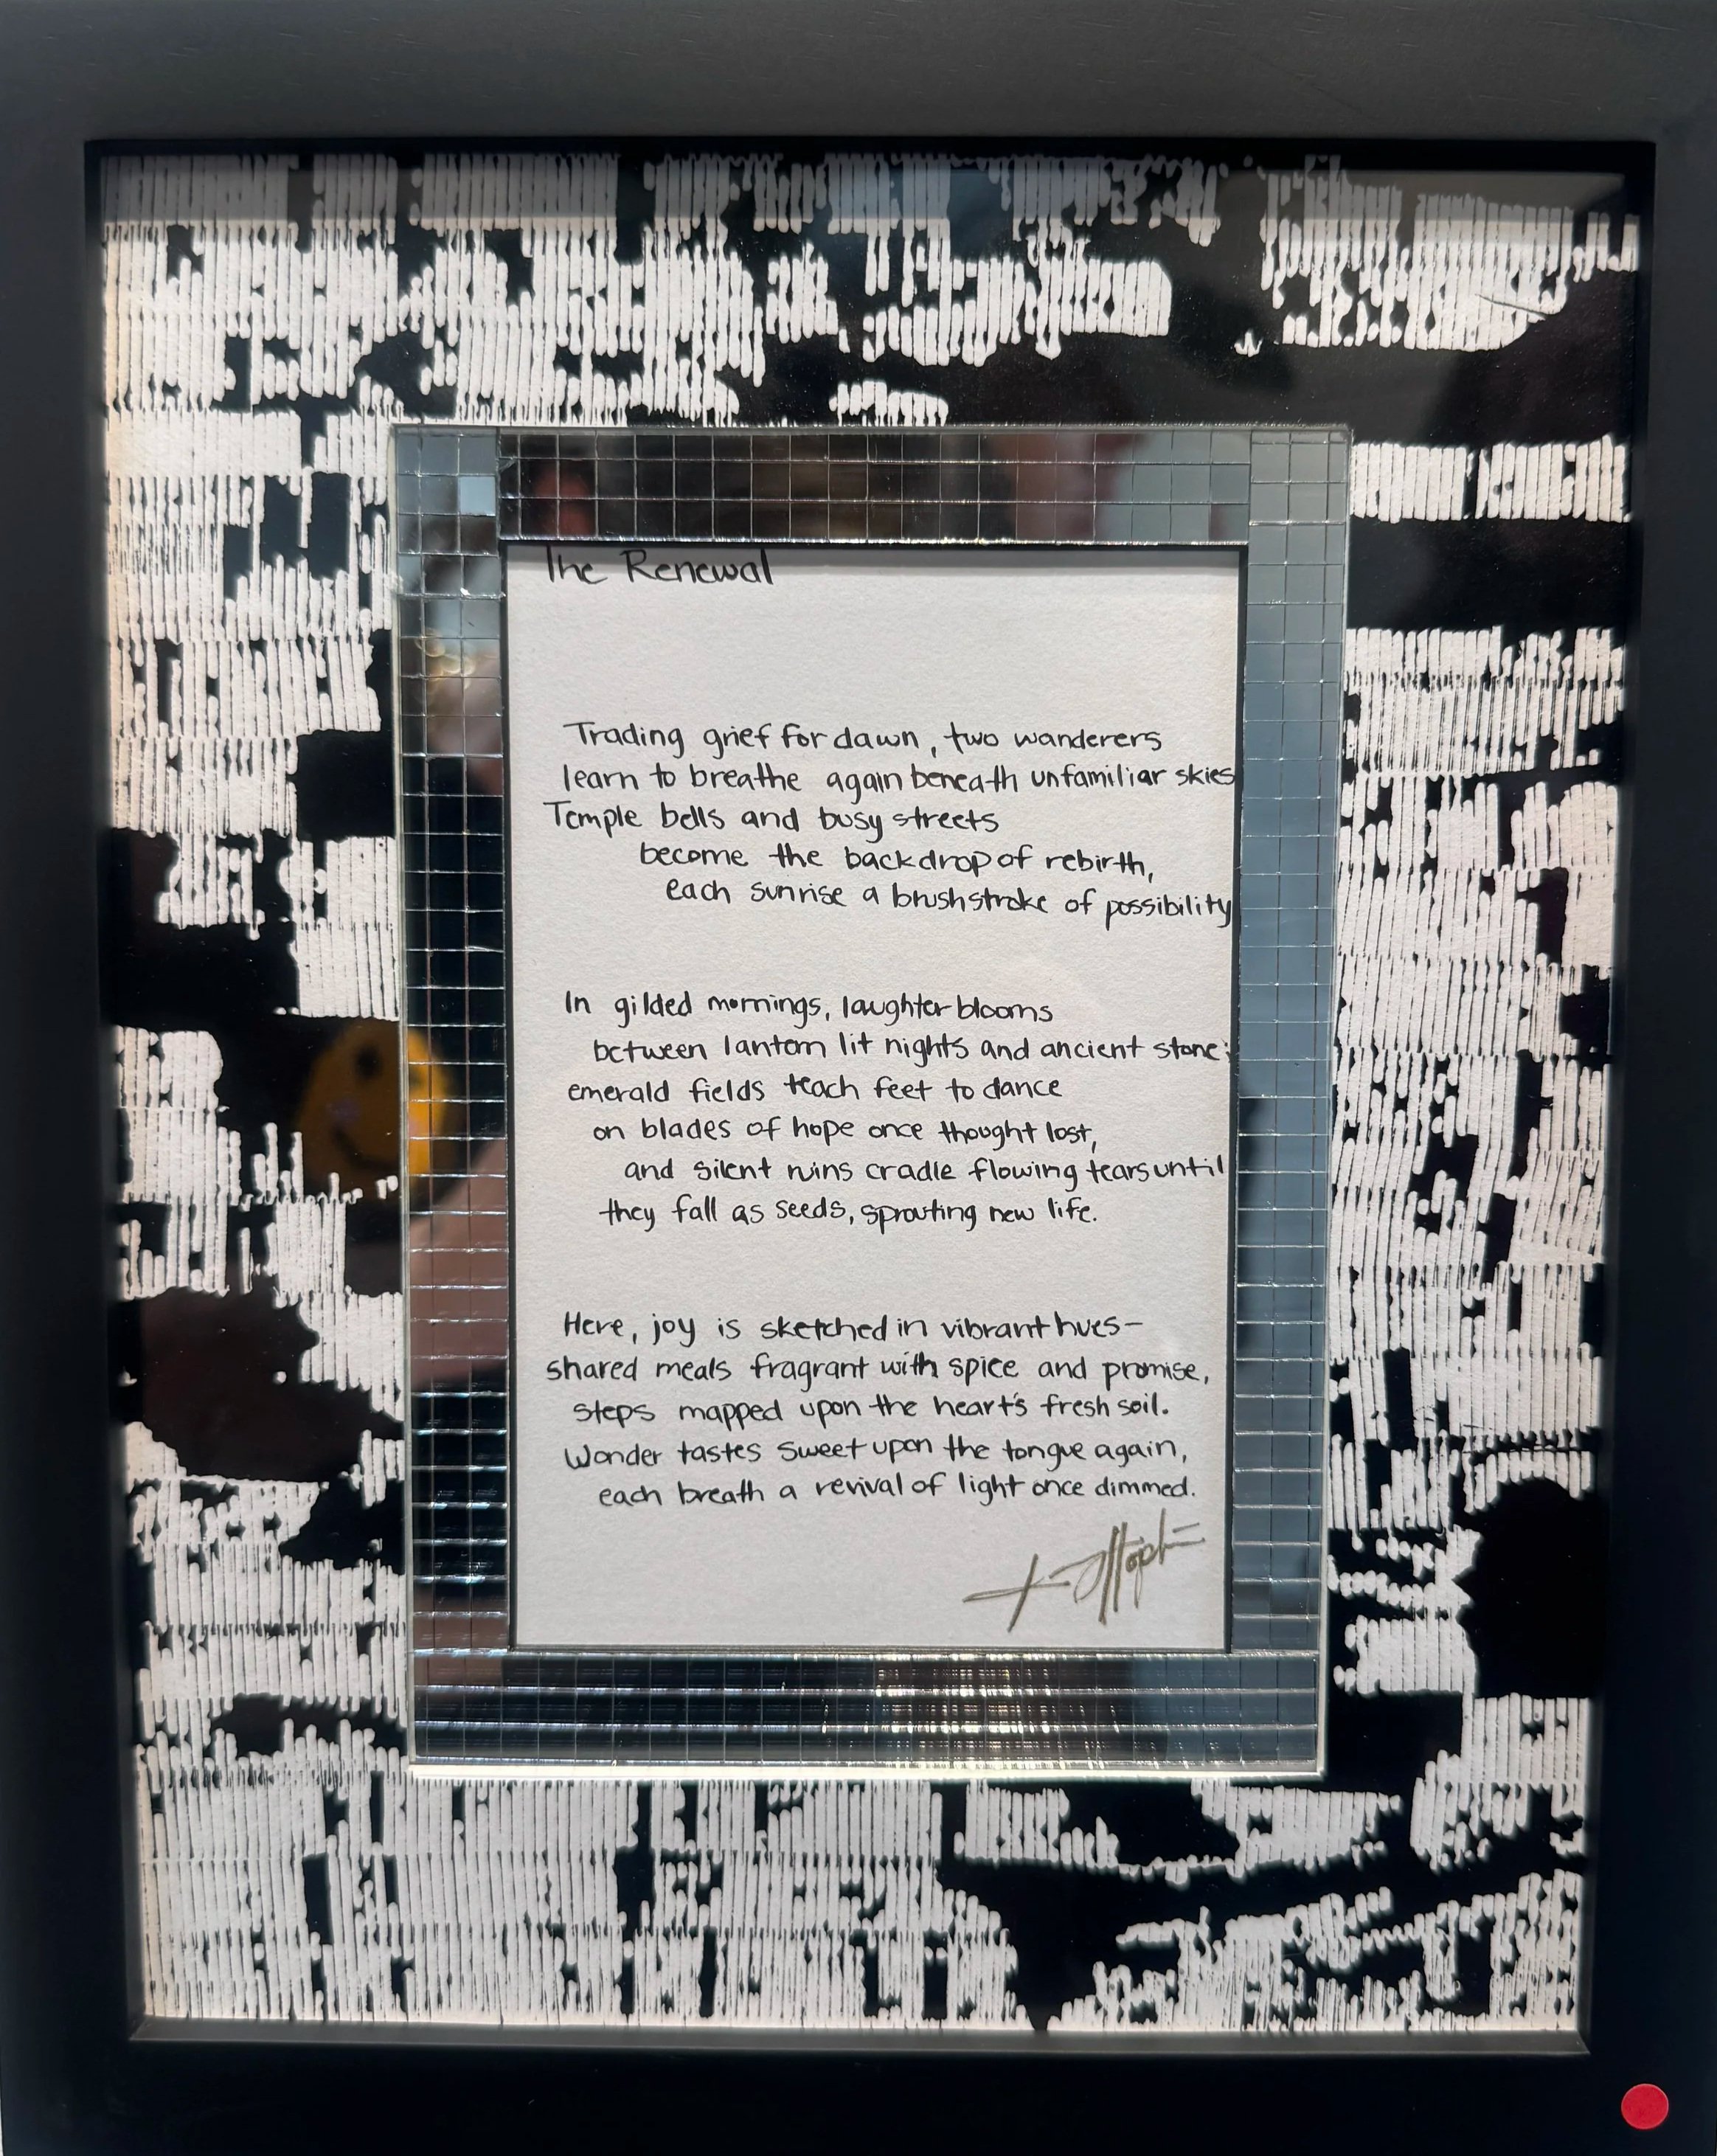 The Renewal
Trading grief for dawn, two wanderers
learn to breathe again beneath unfamiliar skies
Temple bells and busy streets
become the backdrop of rebirth,
each sunrise a brushstroke of possibility
In gilded mornings, laughter blooms
between lantern lit nights and ancient stone;
emerald fields teach feet to dance
on blades of hope once thought lost,
and silent ruins cradle flowing tears until
they fall as seeds, sprouting new life.
Here, joy is sketched in vibrant hues—
shared meals fragrant with spice and promise,
steps mapped upon the heart's fresh soil.
Wonder tastes sweet upon the tongue again,
each breath a revival of light once dimmed.